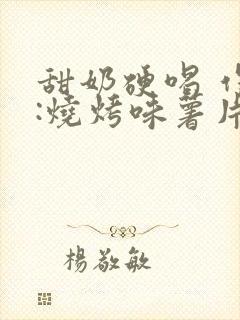 甜奶硬喝
:燒烤味薯片
楊敬敏